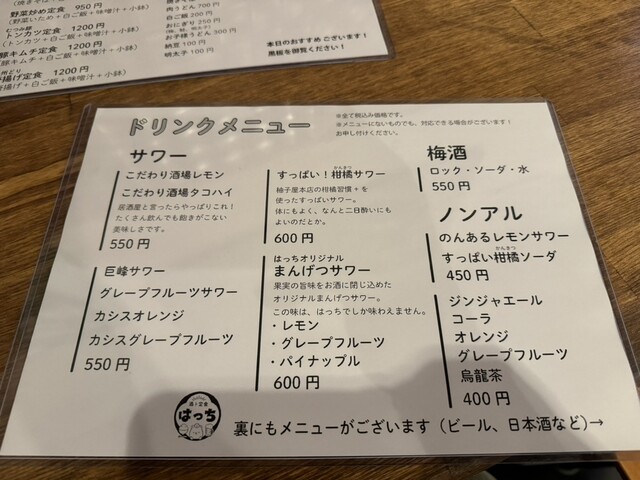 野菜炒め定食 950円
(野菜いため+白ご飯+味噌汁+小鉢)
トンカツ定食 1200円
(トンカツ+白ご飯+味噌汁+小鉢)
豚キムチ定食 1200円
(豚キムチ+白ご飯+味噌汁+小鉢)
揚げ定食 1200円
揚げ+白ご飯+味噌汁+小鉢)
肉うどん 700円
白ご飯 200円
おにぎり 250円
お子様うどん 300円
納豆 100円
明太子 100円
本日のおすすめ ございます!
黒板を御覧ください!
ドリンクメニュー
※全て税込み価格です。
※メニューにないものでも、対応できる場合がございます!
お申し付けください。
サワー
こだわり酒場レモン
こだわり酒場タコハイ
居酒屋と言ったらやっぱりこれ!
たくさん飲んでも飽きがこない
美味しさです。
550円
巨峰サワー
グレープフルーツサワー
カシスオレンジ
カシスグレープフルーツ
550円
かんきつ
すっぱい!柑橘サワー
柚子屋本店の柑橘習慣+を
使ったすっぱいサワー。
体にもよく、なんと二日酔いにも
よいのだとか。
600円
はっちオリジナル
まんげつサワー
果実の旨味をお酒に閉じ込めた
オリジナルまんげつサワー。
この味は、はっちでしか味わえません。
・レモン
・グレープフルーツ
・パイナップル
600円
梅酒
ロック・ソーダ・水
550円
ノンアル
のんあるレモンサワー
かんきつ
すっぱい柑橘ソーダ
450円
ジンジャエール
コーラ
オレンジ
グレープフルーツ
烏龍茶
400円
酒と定食
はっち
裏にもメニューがございます(ビール、日本酒など)→